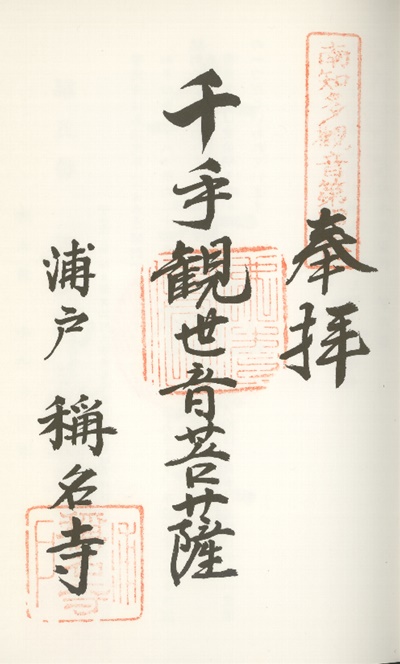 南知多観音第
奉拝
千手観世音菩薩
浦戸 称名寺